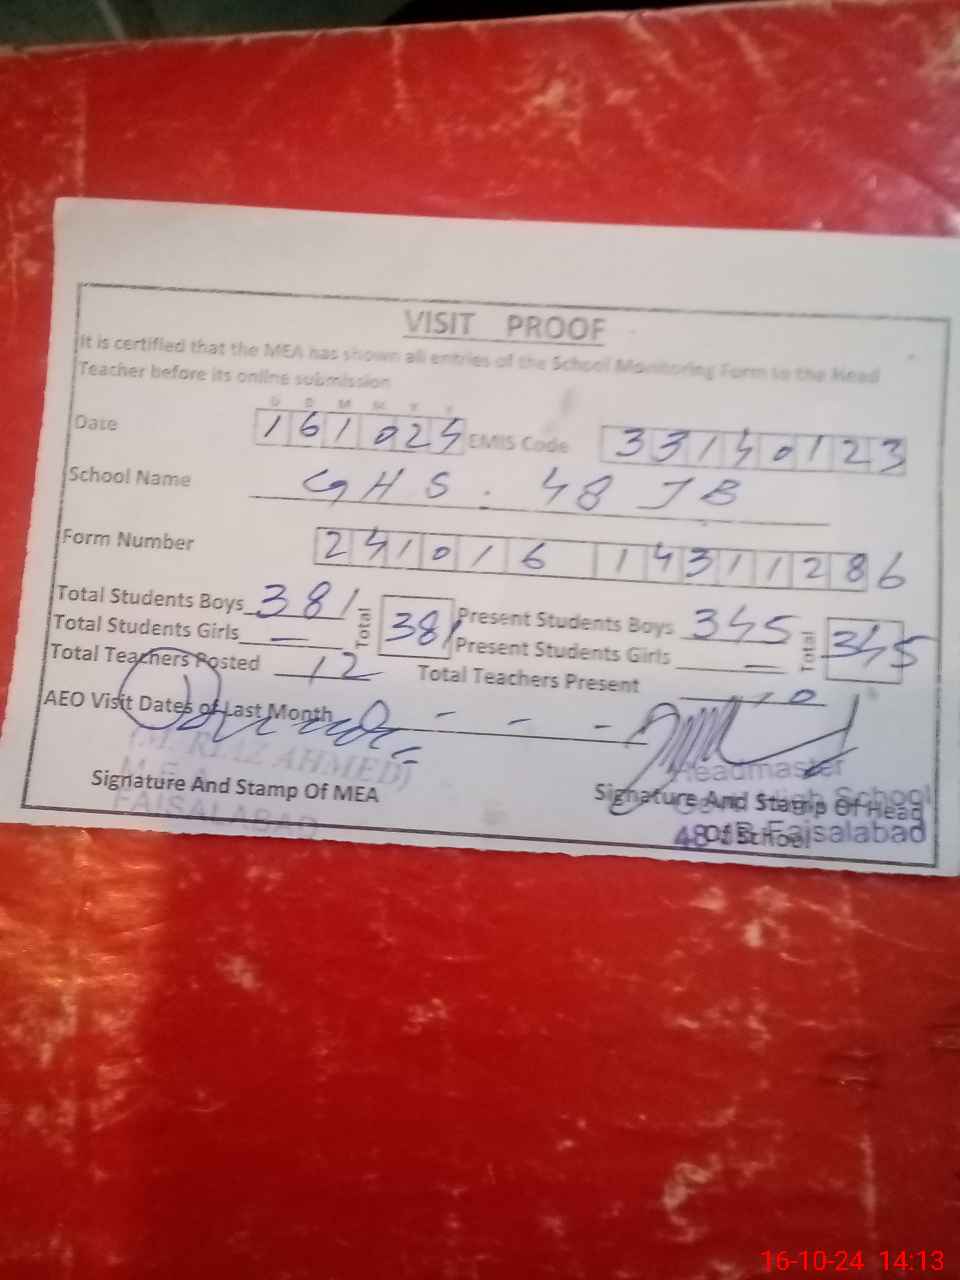 VISIT PROOF
It is certified that the MEA has shown all entries of the School Monitoring Form to the Head
Teacher before its online submission
D D M M Y Y
Date 161024 EMIS Code 33140123
School Name GHS. 48 JB
Form Number 241016 14311286
Total Students Boys 381 Total 381 Present Students Boys 345 Total 345
Total Students Girls — Present Students Girls —
Total Teachers Posted 12 Total Teachers Present 10
AEO Visit Dates of Last Month - - -
(M. RIAZ AHMED)
M.E.A
FAISALABAD
Signature And Stamp Of MEA
Headmaster
High School
48 JB Faisalabad
Signature And Stamp Of Head
Of School
16-10-24 14:13